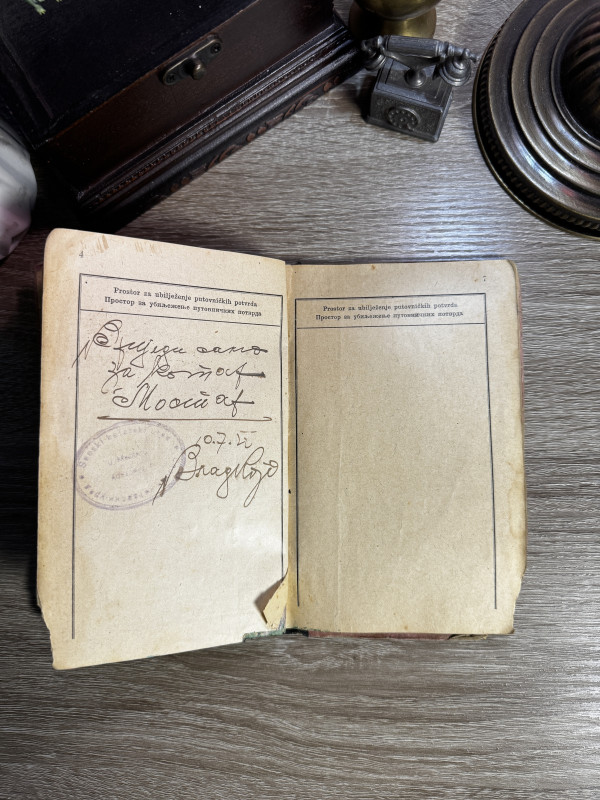 4
Prostor za ubilježenje putovničkih potvrda
Простор за убиљежење путовничких потврда
Вриједи само
за Котар
Мостар
10.7.
7
Prostor za ubilježenje putovničkih potvrda
Простор за убиљежење путовничких потврда